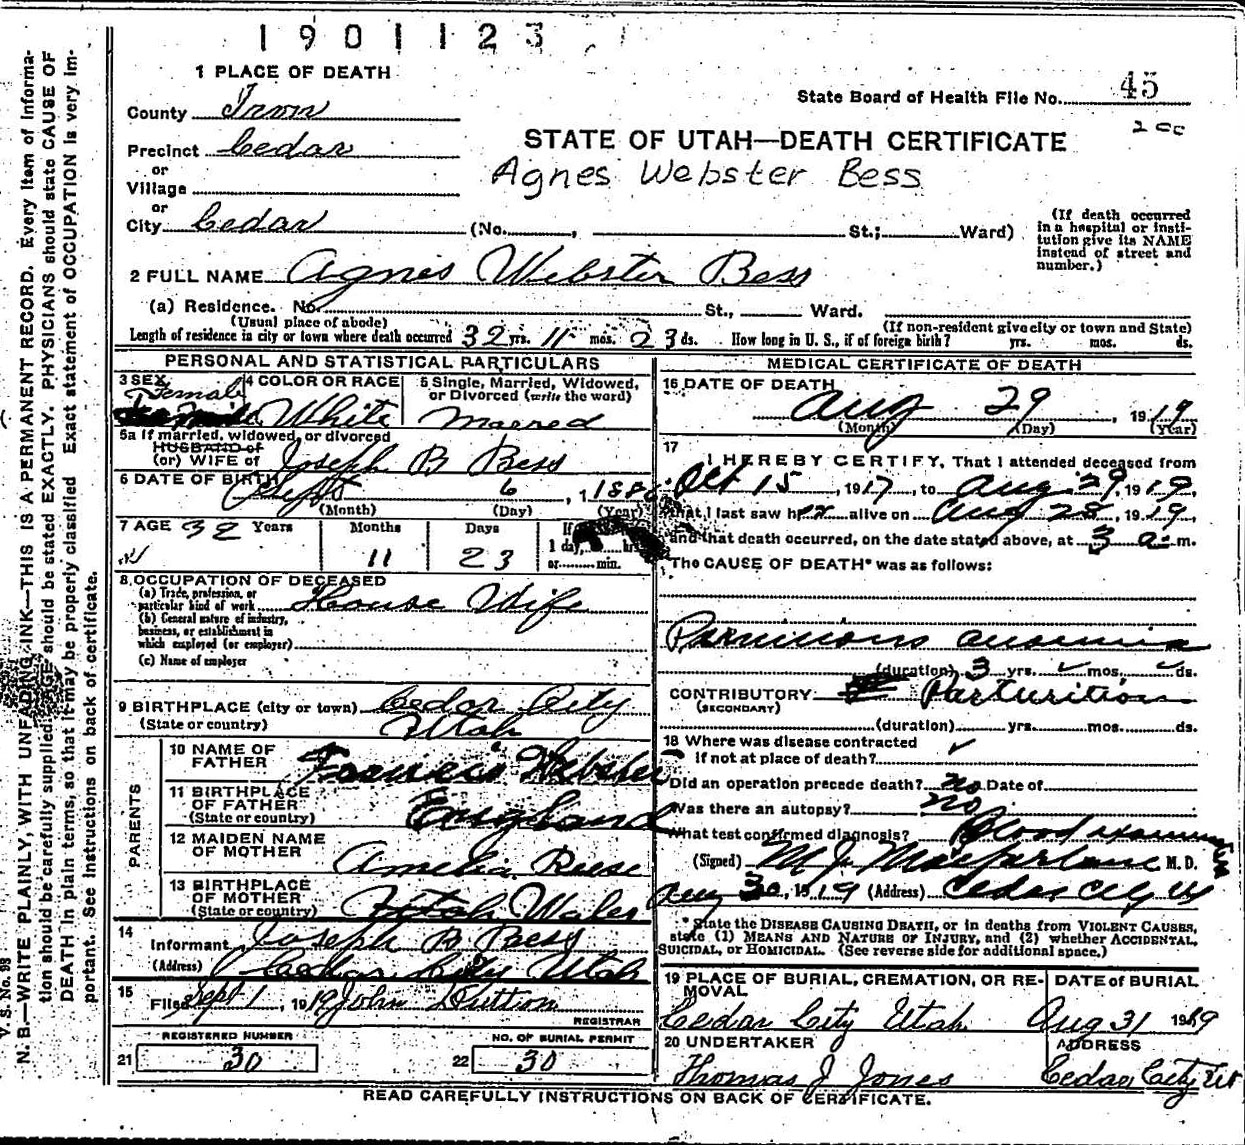 1901123
1 PLACE OF DEATH
State Board of Health File No. 45
200
County Iron
STATE OF UTAH—DEATH CERTIFICATE
Precinct Cedar
Agnes Webster Bess
or
Village
or
City Cedar (No. , St.; Ward)
(If death occurred in a hospital or institution give its NAME instead of street and number.)
2 FULL NAME Agnes Webster Bess
(a) Residence. No. St., Ward.
(Usual place of abode) (If non-resident give city or town and State)
Length of residence in city or town where death occurred 32 yrs. 11 mos. 23 ds. How long in U. S., if of foreign birth? yrs. mos. ds.
PERSONAL AND STATISTICAL PARTICULARS
3 SEX Female
4 COLOR OR RACE White
5 Single, Married, Widowed, or Divorced (write the word) Marred
5a If married, widowed, or divorced
HUSBAND of
(or) WIFE of Joseph B Bess
6 DATE OF BIRTH Sept 6, 1886
(Month) (Day) (Year)
7 AGE 32 Years Months Days
11 23
If
1 day, hrs.
or min.
8 OCCUPATION OF DECEASED
(a) Trade, profession, or
particular kind of work House Wife
(b) General nature of industry,
business, or establishment in
which employed (or employer)
(c) Name of employer
9 BIRTHPLACE (city or town) Cedar City
(State or country) Utah
PARENTS
10 NAME OF
FATHER Francis Webster
11 BIRTHPLACE
OF FATHER
(State or country) England
12 MAIDEN NAME
OF MOTHER Amelia Reese
13 BIRTHPLACE
OF MOTHER
(State or country) Utah Wales
14
Informant Joseph B Bess
(Address) Cedar City Utah
15
Filed Sept 1, 1919 John Dutton
REGISTRAR
REGISTERED NUMBER NO. OF BURIAL PERMIT
21 30 22 30
MEDICAL CERTIFICATE OF DEATH
16 DATE OF DEATH
Aug 29, 1919
(Month) (Day) (Year)
17
I HEREBY CERTIFY, That I attended deceased from
Oct 15, 1917, to Aug 29, 1919,
that I last saw her alive on Aug 28, 1919,
and that death occurred, on the date stated above, at 3 a. m.
The CAUSE OF DEATH* was as follows:
Pernicious anaemia
(duration) 3 yrs. mos. ds.
CONTRIBUTORY Parturition
(SECONDARY)
(duration) yrs. mos. ds.
18 Where was disease contracted
if not at place of death?
Did an operation precede death? no Date of
Was there an autopsy? no
What test confirmed diagnosis? Blood examination
(Signed) M J Macfarlane M. D.
Aug 30, 1919 (Address) Cedar City U
*State the DISEASE CAUSING DEATH, or in deaths from VIOLENT CAUSES,
state (1) MEANS AND NATURE OF INJURY, and (2) whether ACCIDENTAL,
SUICIDAL, or HOMICIDAL. (See reverse side for additional space.)
19 PLACE OF BURIAL, CREMATION, OR RE-
MOVAL
Cedar City Utah
DATE of BURIAL
Aug 31 1919
20 UNDERTAKER
Thomas J Jones
ADDRESS
Cedar City Ut
READ CAREFULLY INSTRUCTIONS ON BACK OF CERTIFICATE.
V. S. No. 98
N. B.—WRITE PLAINLY, WITH UNFADING INK—THIS IS A PERMANENT RECORD. Every item of informa-
tion should be carefully supplied. AGE should be stated EXACTLY. PHYSICIANS should state CAUSE OF
DEATH in plain terms, so that it may be properly classified. Exact statement of OCCUPATION is very im-
portant. See instructions on back of certificate.